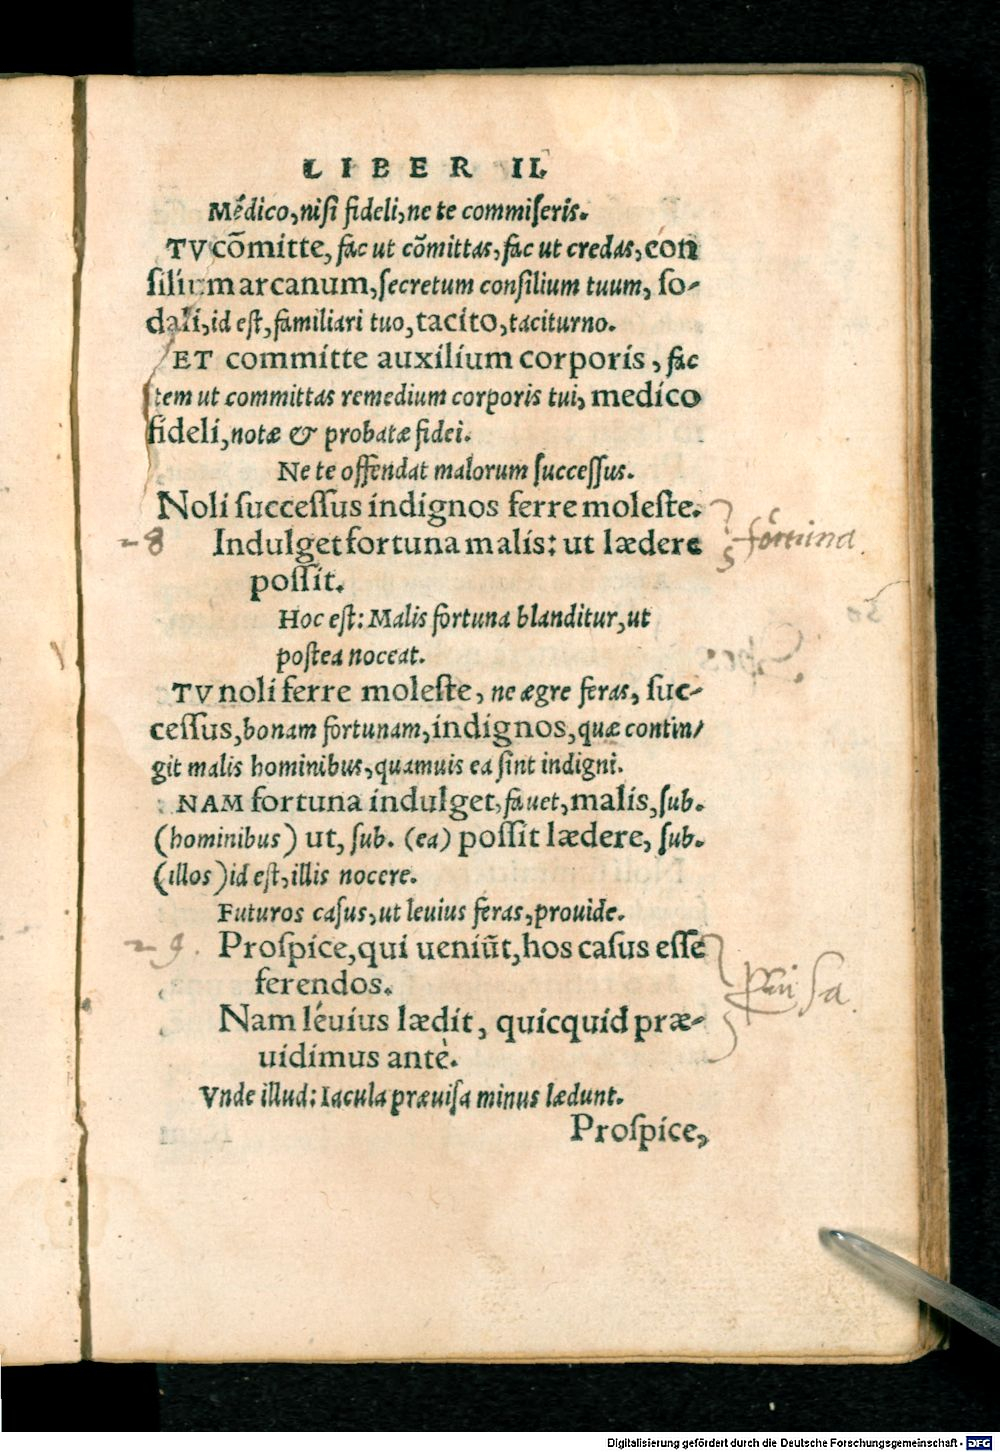 LIBER II.
Médico, nisi fideli, ne te commiseris.
TV cõmitte, fac ut cõmittas, fac ut credas, con
silium arcanum, secretum consilium tuum, so-
dali, id est, familiari tuo, tacito, taciturno.
ET committe auxilium corporis, fac
tem ut committas remedium corporis tui, medico
fideli, notæ & probatæ fidei.
Ne te offendat malorum successus.
Noli successus indignos ferre moleste.
28 Indulget fortuna malis: ut lædere fortuna
possit.
Hoc est: Malis fortuna blanditur, ut
postea noceat.
TV noli ferre moleste, ne ægre feras, suc-
cessus, bonam fortunam, indignos, quæ contin/
git malis hominibus, quamuis ea sint indigni.
NAM fortuna indulget, fauet, malis, sub.
(hominibus) ut, sub. (ea) possit lædere, sub.
(illos) id est, illis nocere.
Futuros casus, ut leuius feras, prouide.
29. Prospice, qui ueniũt, hos casus esse
ferendos.
Nam léuius lædit, quicquid præ-
uidimus antè.
Vnde illud: Iacula præuisa minus lædunt.
Prospice,
Digitalisierung gefördert durch die Deutsche Forschungsgemeinschaft - DFG